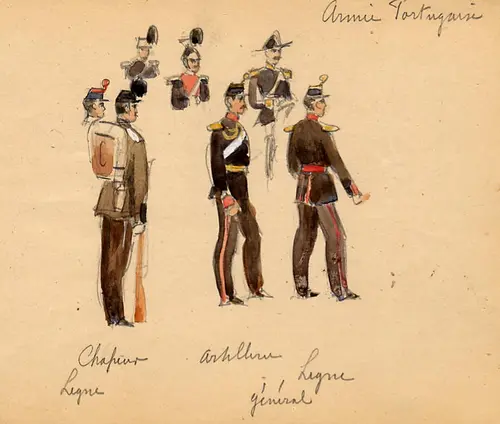 Armée Portugaise
Chasseur
Legne
Artillerie
Legne
général